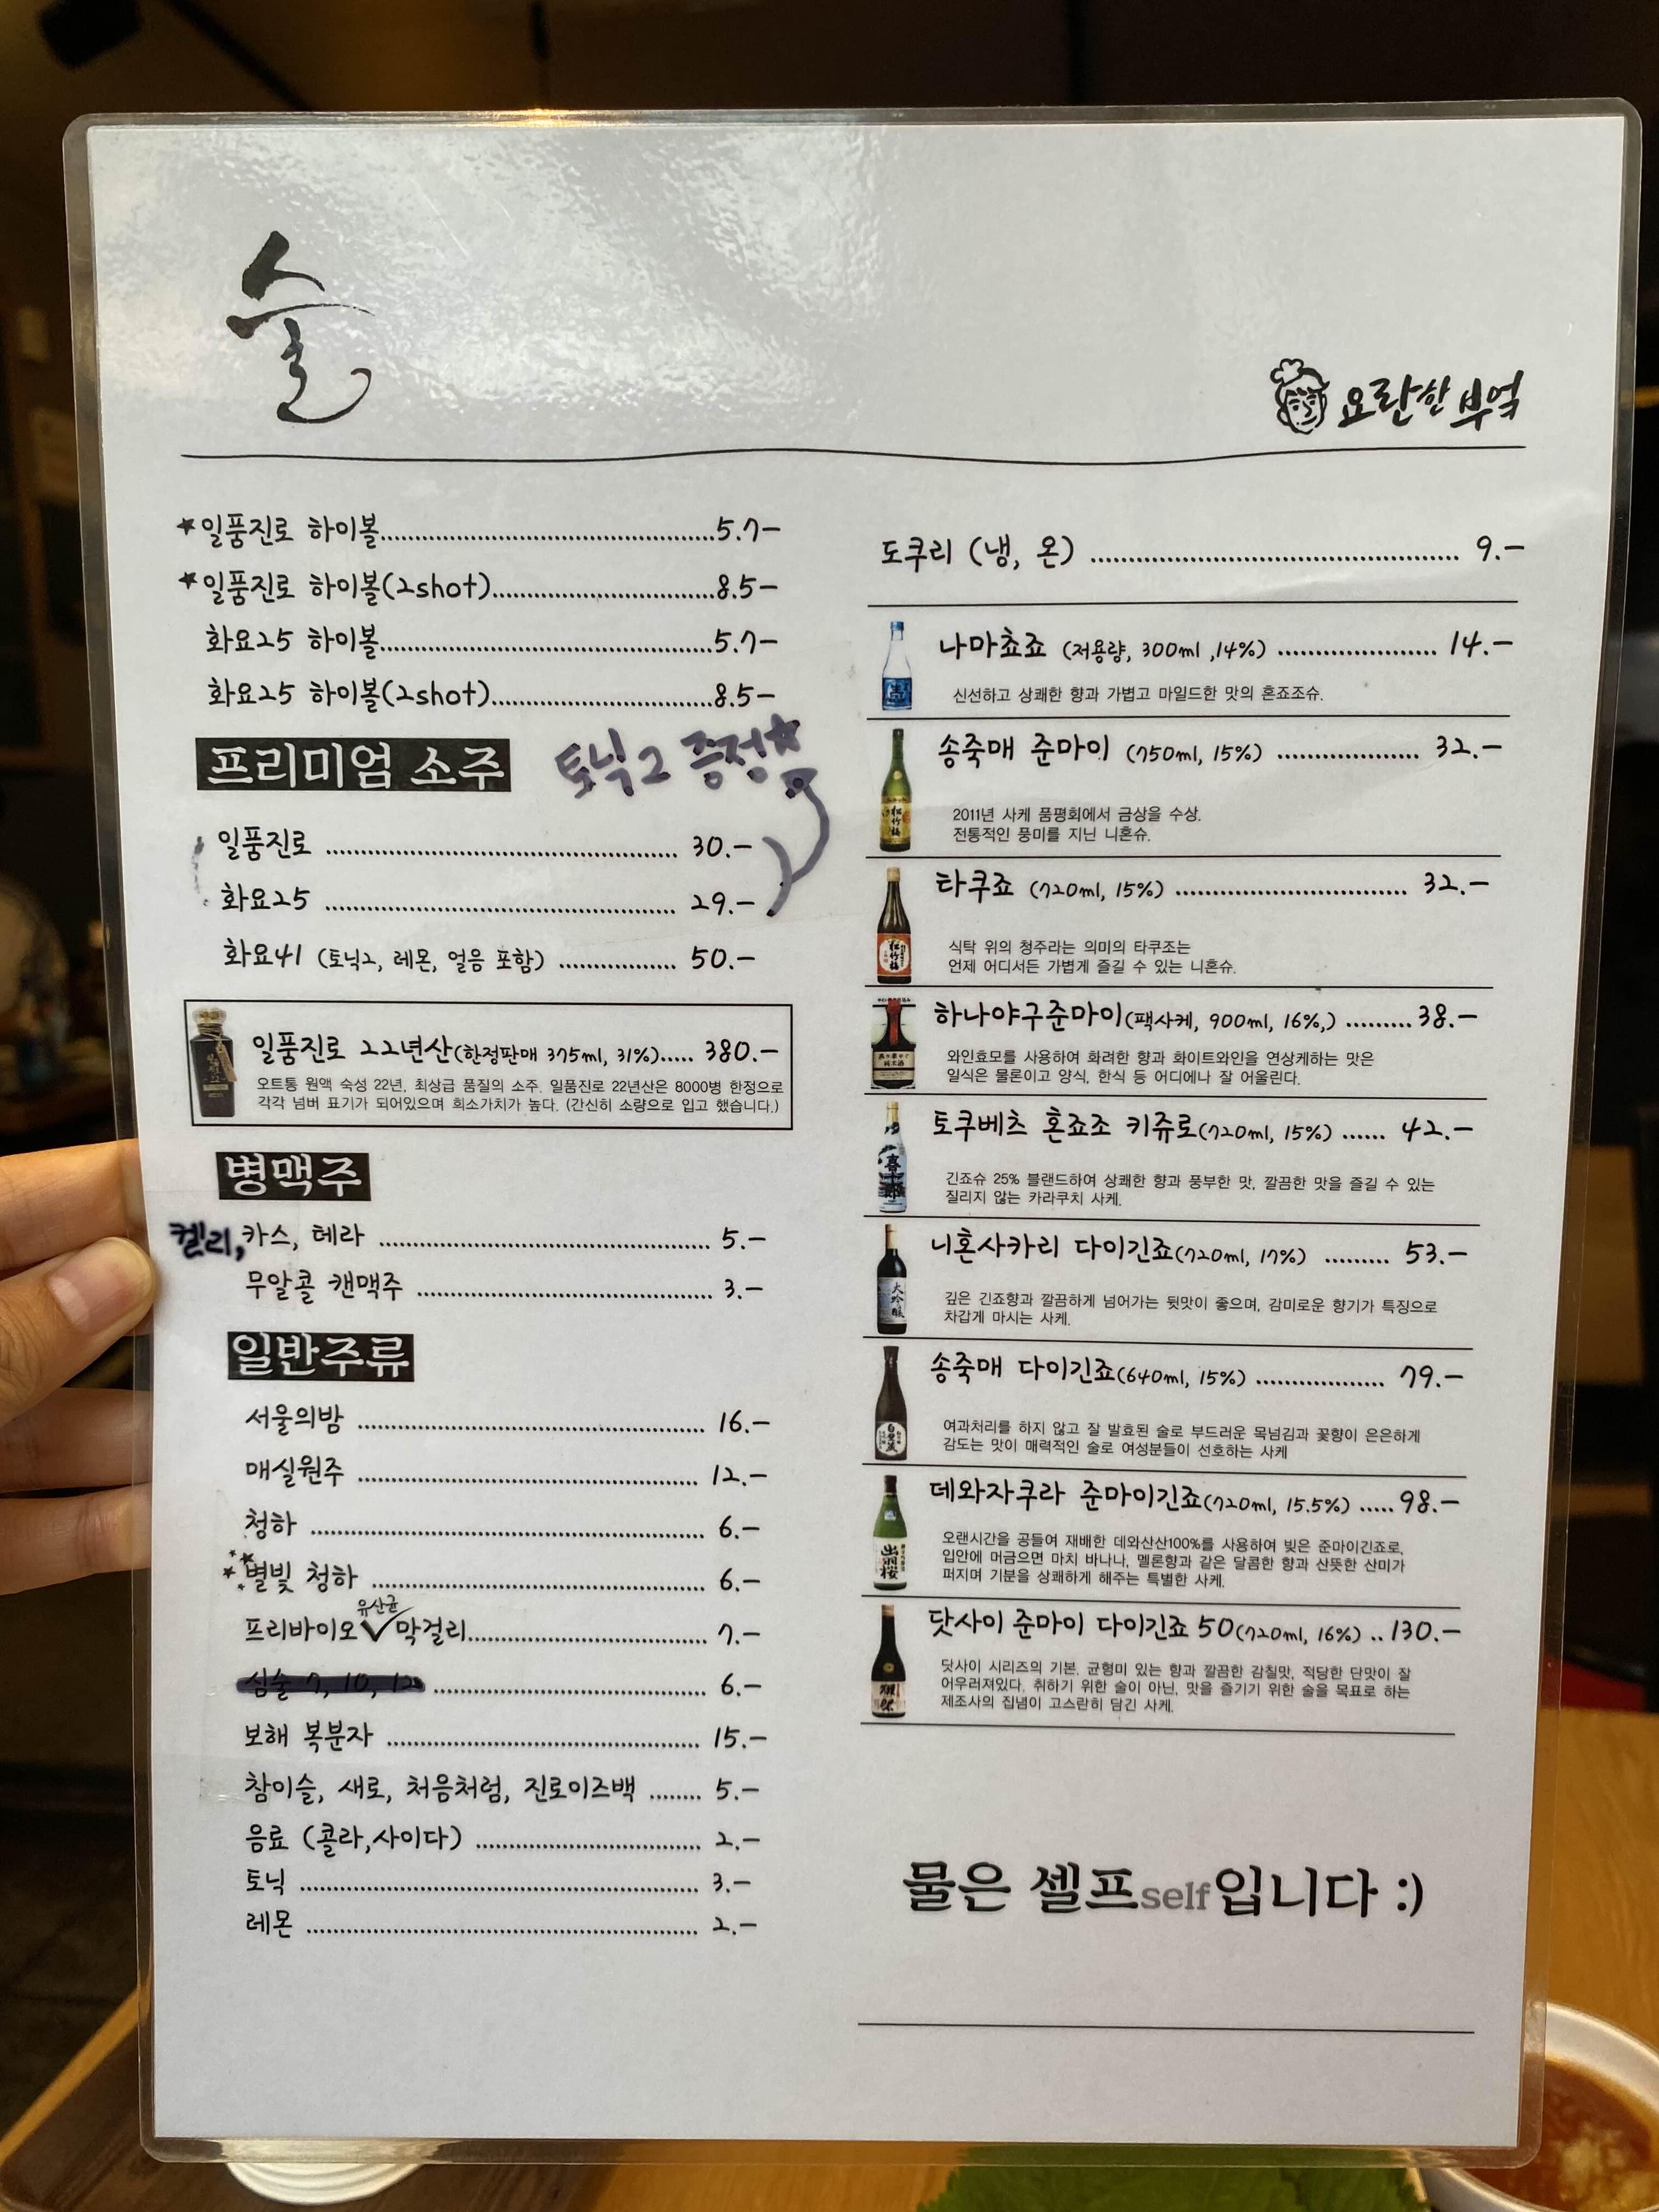 술
요란한 부엌
★일품진로 하이볼 5.7-
★일품진로 하이볼(2shot) 8.5-
화요25 하이볼 5.7-
화요25 하이볼(2shot) 8.5-
프리미엄 소주
토닉2 증정☆
일품진로 30.-
화요25 29.-
화요41 (토닉2, 레몬, 얼음 포함) 50.-
일품진로 22년산(한정판매 375ml, 31%) 380.-
오트통 원액 숙성 22년, 최상급 품질의 소주. 일품진로 22년산은 8000병 한정으로
각각 넘버 표기가 되어있으며 희소가치가 높다. (간신히 소량으로 입고 했습니다.)
병맥주
켈리, 카스, 테라 5.-
무알콜 캔맥주 3.-
일반주류
서울의밤 16.-
매실원주 12.-
청하 6.-
별빛 청하 6.-
유산균
프리바이오 막걸리 7.-
심술 7, 10, 12 6.-
보해 복분자 15.-
참이슬, 새로, 처음처럼, 진로이즈백 5.-
음료 (콜라,사이다) 2.-
토닉 3.-
레몬 2.-
도쿠리 (냉, 온) 9.-
나마쵸죠 (저용량, 300ml ,14%) 14.-
신선하고 상쾌한 향과 가볍고 마일드한 맛의 혼죠조슈.
송죽매 준마이 (750ml, 15%) 32.-
2011년 사케 품평회에서 금상을 수상.
전통적인 풍미를 지닌 니혼슈.
타쿠죠 (720ml, 15%) 32.-
식탁 위의 청주라는 의미의 타쿠조는
언제 어디서든 가볍게 즐길 수 있는 니혼슈.
하나야구준마이(팩사케, 900ml, 16%,) 38.-
와인효모를 사용하여 화려한 향과 화이트와인을 연상케하는 맛은
일식은 물론이고 양식, 한식 등 어디에나 잘 어울린다.
토쿠베츠 혼죠조 키쥬로(720ml, 15%) 42.-
긴죠슈 25% 블랜드하여 상쾌한 향과 풍부한 맛, 깔끔한 맛을 즐길 수 있는
질리지 않는 카라쿠치 사케.
니혼사카리 다이긴죠(720ml, 17%) 53.-
깊은 긴죠향과 깔끔하게 넘어가는 뒷맛이 좋으며, 감미로운 향기가 특징으로
차갑게 마시는 사케.
송죽매 다이긴죠(640ml, 15%) 79.-
여과처리를 하지 않고 잘 발효된 술로 부드러운 목넘김과 꽃향이 은은하게
감도는 맛이 매력적인 술로 여성분들이 선호하는 사케
데와자쿠라 준마이긴죠(720ml, 15.5%) 98.-
오랜시간을 공들여 재배한 데와산산100%를 사용하여 빚은 준마이긴죠로,
입안에 머금으면 마치 바나나, 멜론향과 같은 달콤한 향과 산뜻한 산미가
퍼지며 기분을 상쾌하게 해주는 특별한 사케.
닷사이 준마이 다이긴죠 50(720ml, 16%) 130.-
닷사이 시리즈의 기본. 균형미 있는 향과 깔끔한 감칠맛, 적당한 단맛이 잘
어우러져있다. 취하기 위한 술이 아닌, 맛을 즐기기 위한 술을 목표로 하는
제조사의 집념이 고스란히 담긴 사케.
물은 셀프self입니다 :)